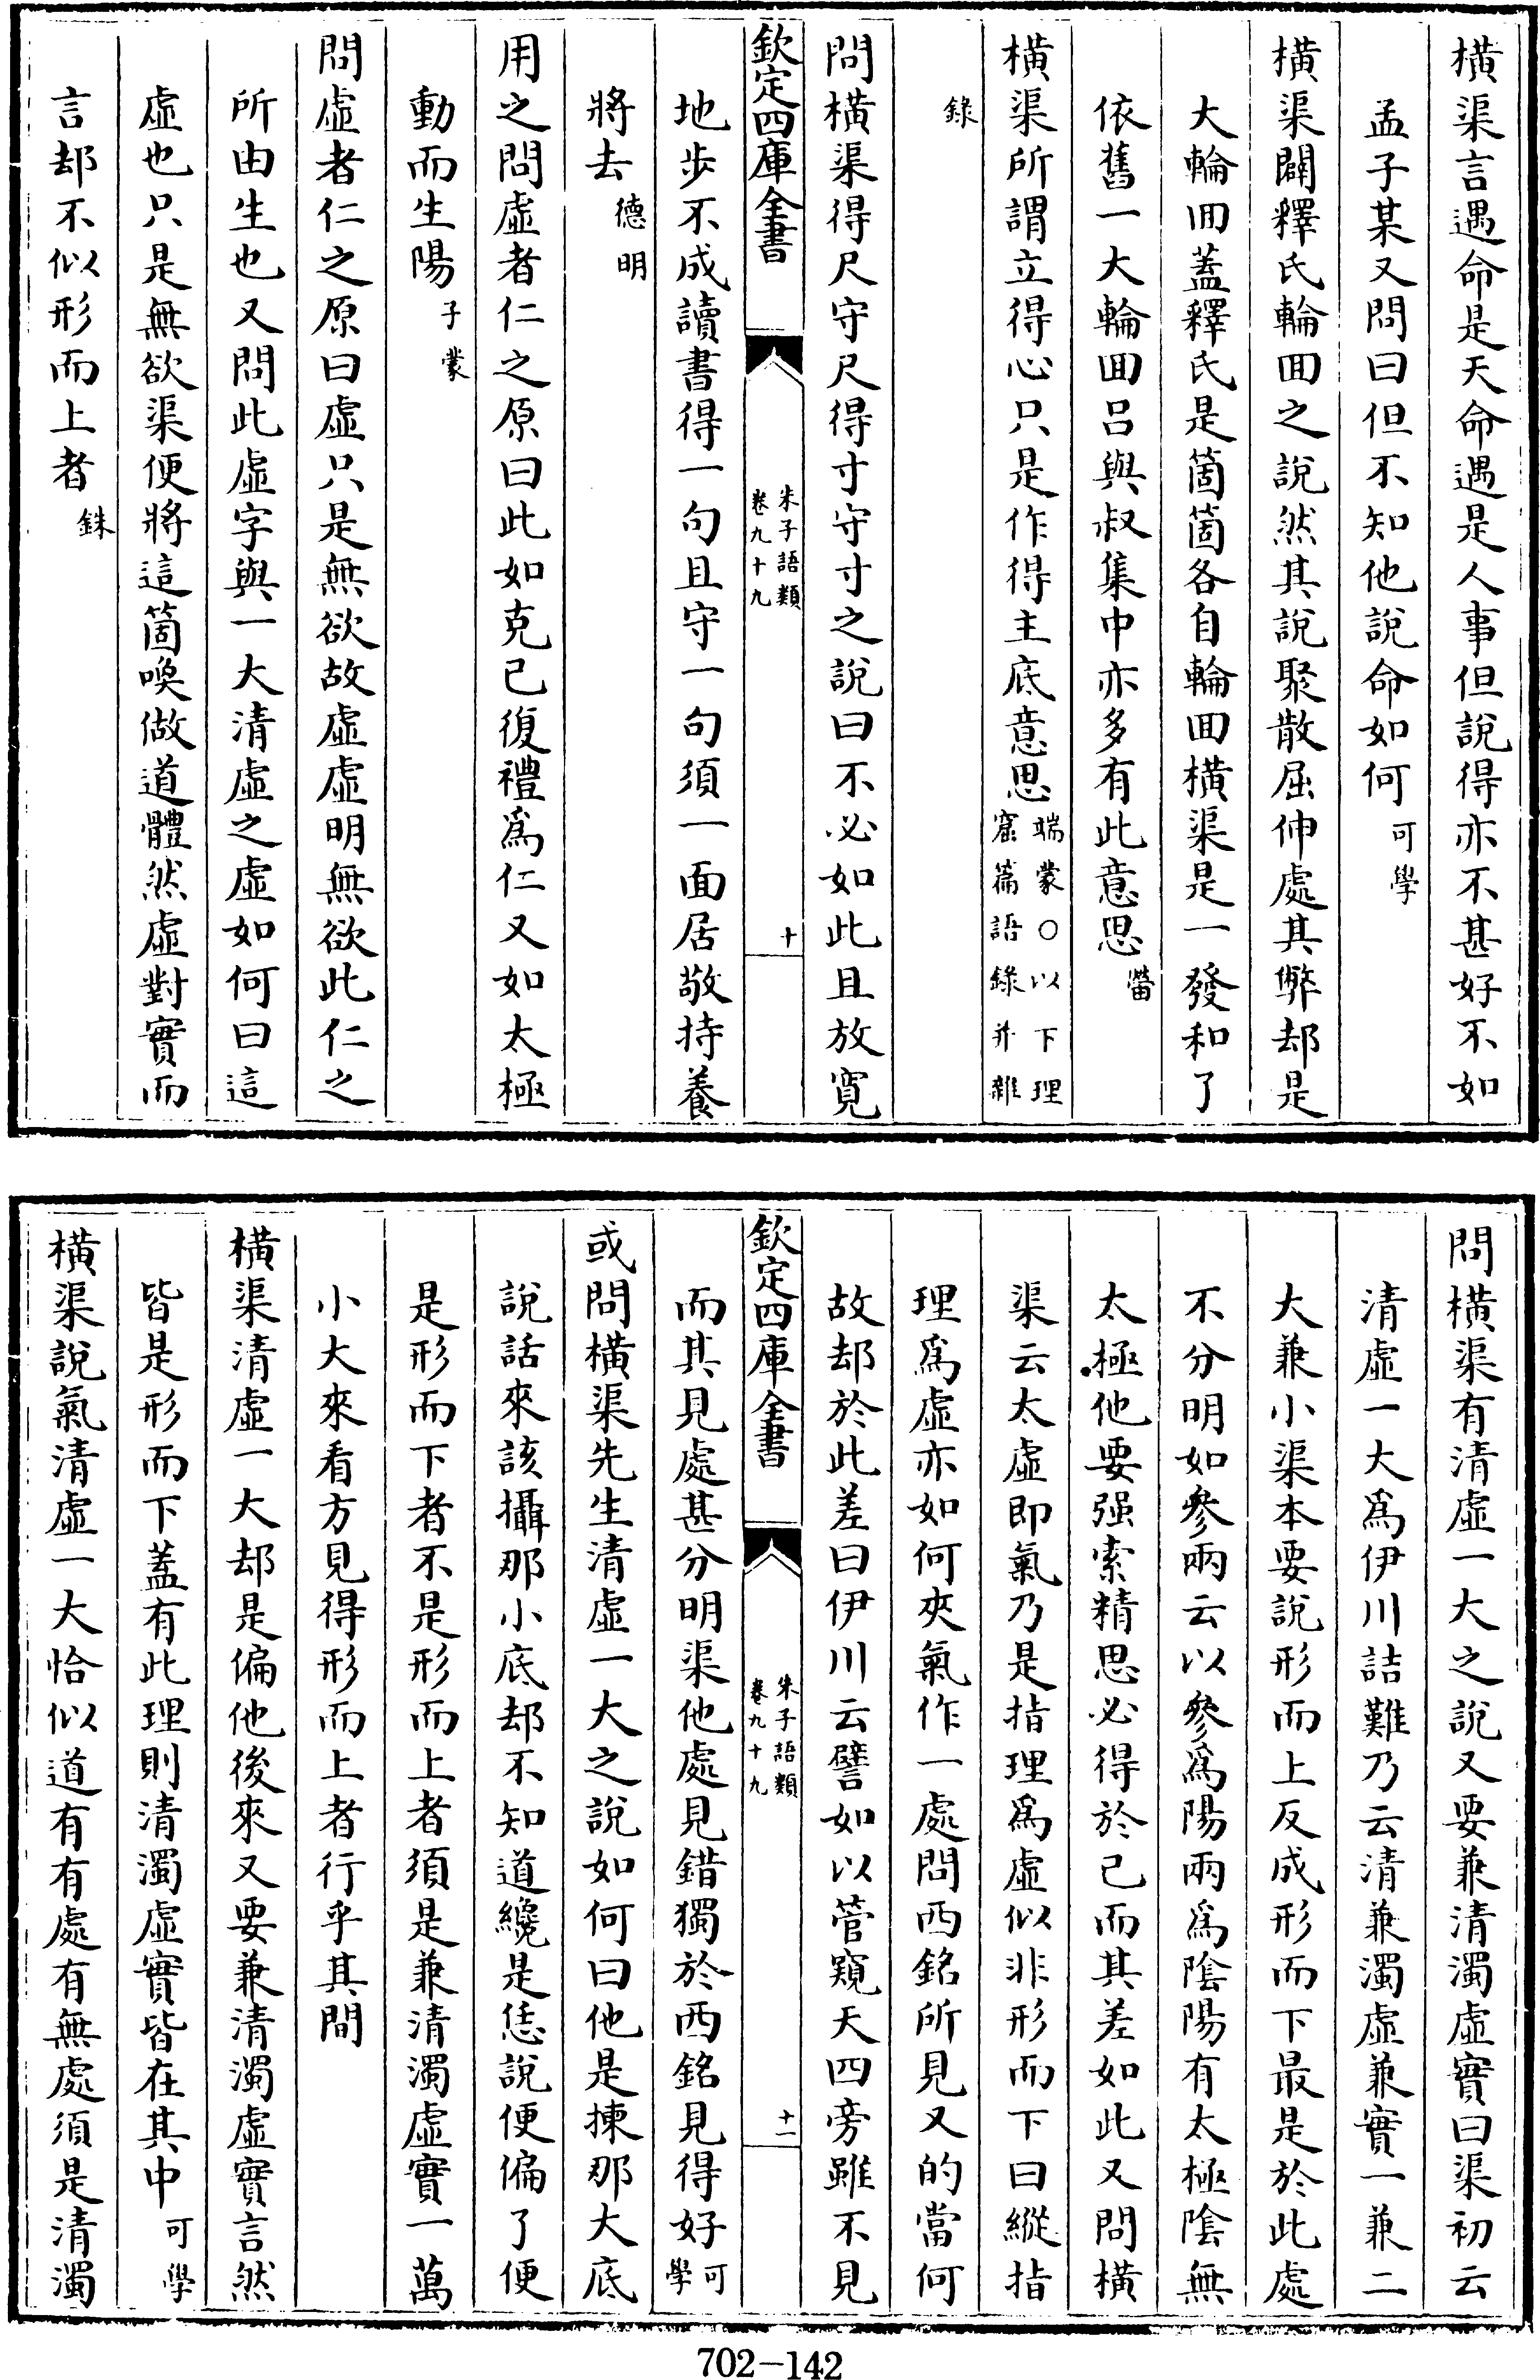 橫渠言遇命是天命遇是人事但說得亦不甚好不如
孟子某又問曰但不知他說命如何可學
橫渠闢釋氏輪囬之說然其說聚散屈伸處其弊却是
大輪囬蓋釋氏是箇箇各自輪囬橫渠是一發和了
依舊一大輪囬呂與叔集中亦多有此意思㽦
橫渠所謂立得心只是作得主底意思端蒙○以下理
窟篇語錄并雜
錄
問橫渠得尺守尺得寸守寸之說曰不必如此且放寛
欽定四庫全書
朱子語類
卷九十九
十
地步不成讀書得一句且守一句須一面居敬持養
將去德明
用之問虛者仁之原曰此如克已復禮爲仁又如太極
動而生陽子蒙
問虛者仁之原曰虛只是無欲故虛虛明無欲此仁之
所由生也又問此虛字與一大清虛之虛如何曰這
虛也只是無欲渠便將這箇喚做道體然虛對實而
言却不似形而上者銖
問橫渠有清虛一大之說又要兼清濁虛實曰渠初云
清虛一大爲伊川詰難乃云清兼濁虛兼實一兼二
大兼小渠本要說形而上反成形而下最是於此處
不分明如參兩云以參爲陽兩爲陰陽有太極陰無
太極他要强索精思必得於己而其差如此又問橫
渠云太虛即氣乃是指理爲虛似非形而下曰縱指
理爲虛亦如何夾氣作一處問西銘所見又的當何
故却於此差曰伊川云譬如以管窺天四旁雖不見
欽定四庫全書
朱子語類
卷九十九
十一
而其見處甚分明渠他處見錯獨於西銘見得好可學
或問橫渠先生清虛一大之說如何曰他是揀那大底
說話來該攝那小底却不知道纔是恁說便偏了便
是形而下者不是形而上者須是兼清濁虛實一萬
小大來看方見得形而上者行乎其間
橫渠清虛一大却是偏他後來又要兼清濁虛實言然
皆是形而下蓋有此理則清濁虛實皆在其中可學
橫渠說氣清虛一大恰似道有有處有無處須是清濁
702-142